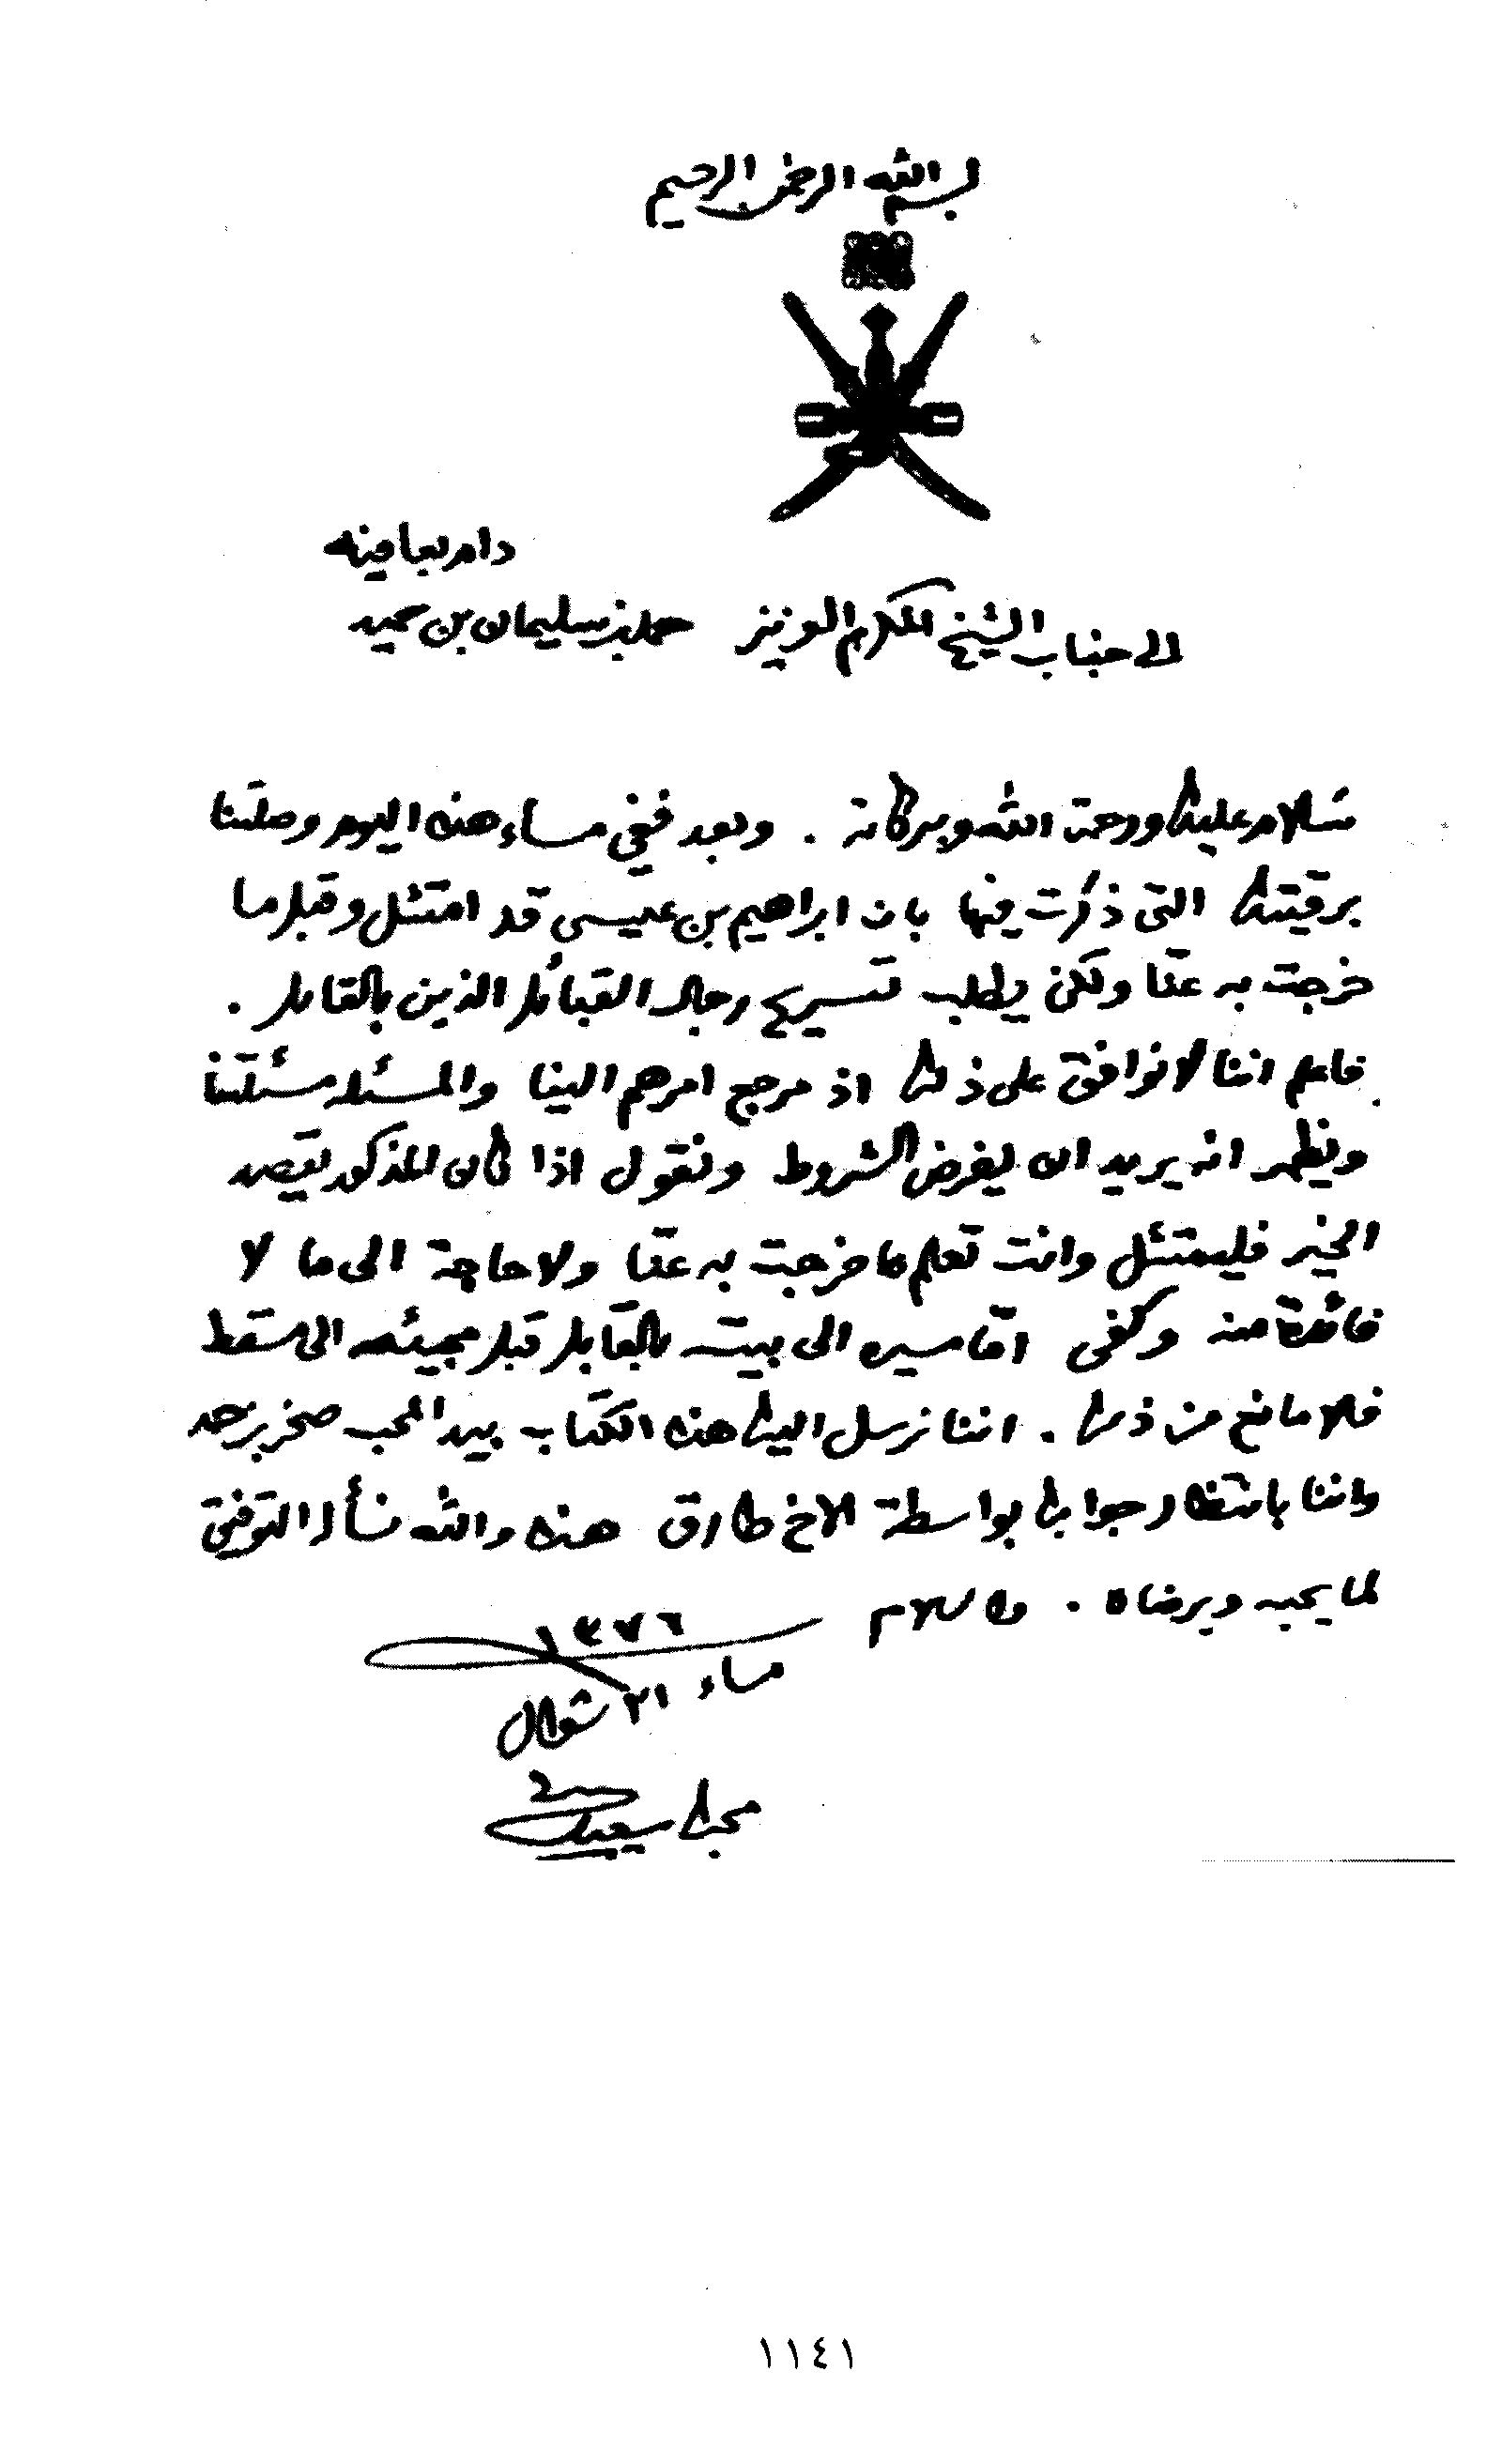 بسم الله الرحمن الرحيم
دام بعافيته
الى جناب الشيخ المكرم العزيز حمد بن سليمان بن حميد
سلام عليك ورحمة الله وبركاته . وبعد ففي مساء هذه اليوم وصلتنا
برقيتك التى ذكرت فيها بان ابراهيم بن عيسى قد امتثل وقبل ما
خرجت به عنا ولكن يطلب تسريح رجال القبائل الذين بالقابل .
فاعلم اننا لا نوافق على ذلك اذ مرجع امرهم الينا والمسئله مسئلتنا
ويظهر انه يريد ان يفرض الشروط ونقول اذا كان المذكور يقصد
الخير فليمتثل وانت تعلم ما خرجت به عنا ولا حاجة الى ما لا
فائدة منه وكفى اما مسيره الى بيته بالقابل قبل مجيئه الى مسقط
فلا مانع من ذلك . اننا نرسل اليك هذه الكتاب بيد المحب صخر بن حمد
واننا بانتظار جوابك بواسطة الاخ طارق هذه والله نسأل التوفيق
لما يحبه ويرضاه . والسلام
١٣٧٦
مساء ٢١ شوال
محبك سعيد
١١٤١